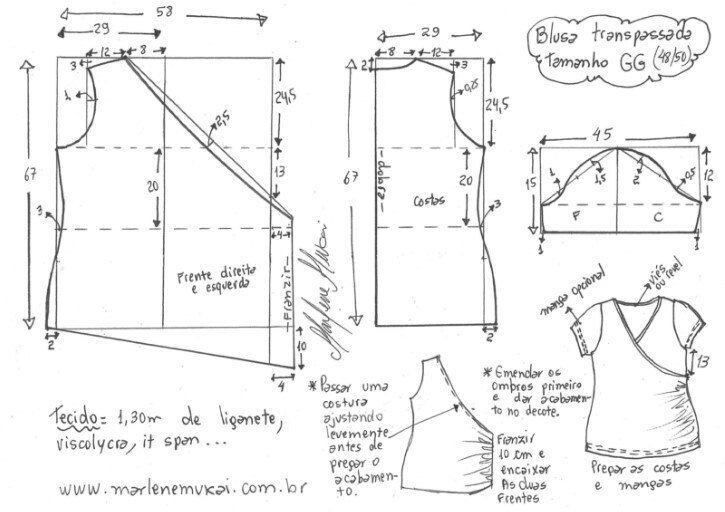 58
29
12
8
3
1
2,5
24,5
13
67
20
3
4
Frente direita
e esquerda
Franzir
2
10
4
Marlene Mukai
29
8
12
2
3
0,25
24,5
67
dobra
20
costas
3
2
Blusa transpassada
tamanho GG (48/50)
45
15
1
1,5
2
0,5
12
F
C
1
1
manga opcional
viés ou revel
13
Preparas costas
e mangas
* Passar uma
costura
ajustando
levemente
antes de
prepar o
acabamen-
to.
* Emendar os
ombros primeiro
e dar acabamen-
to no decote.
Franzir
10 cm e
encaixar
As duas
Frentes
Tecido = 1,30m de liganete,
viscolycra, it span ...
www.marlenemukai.com.br